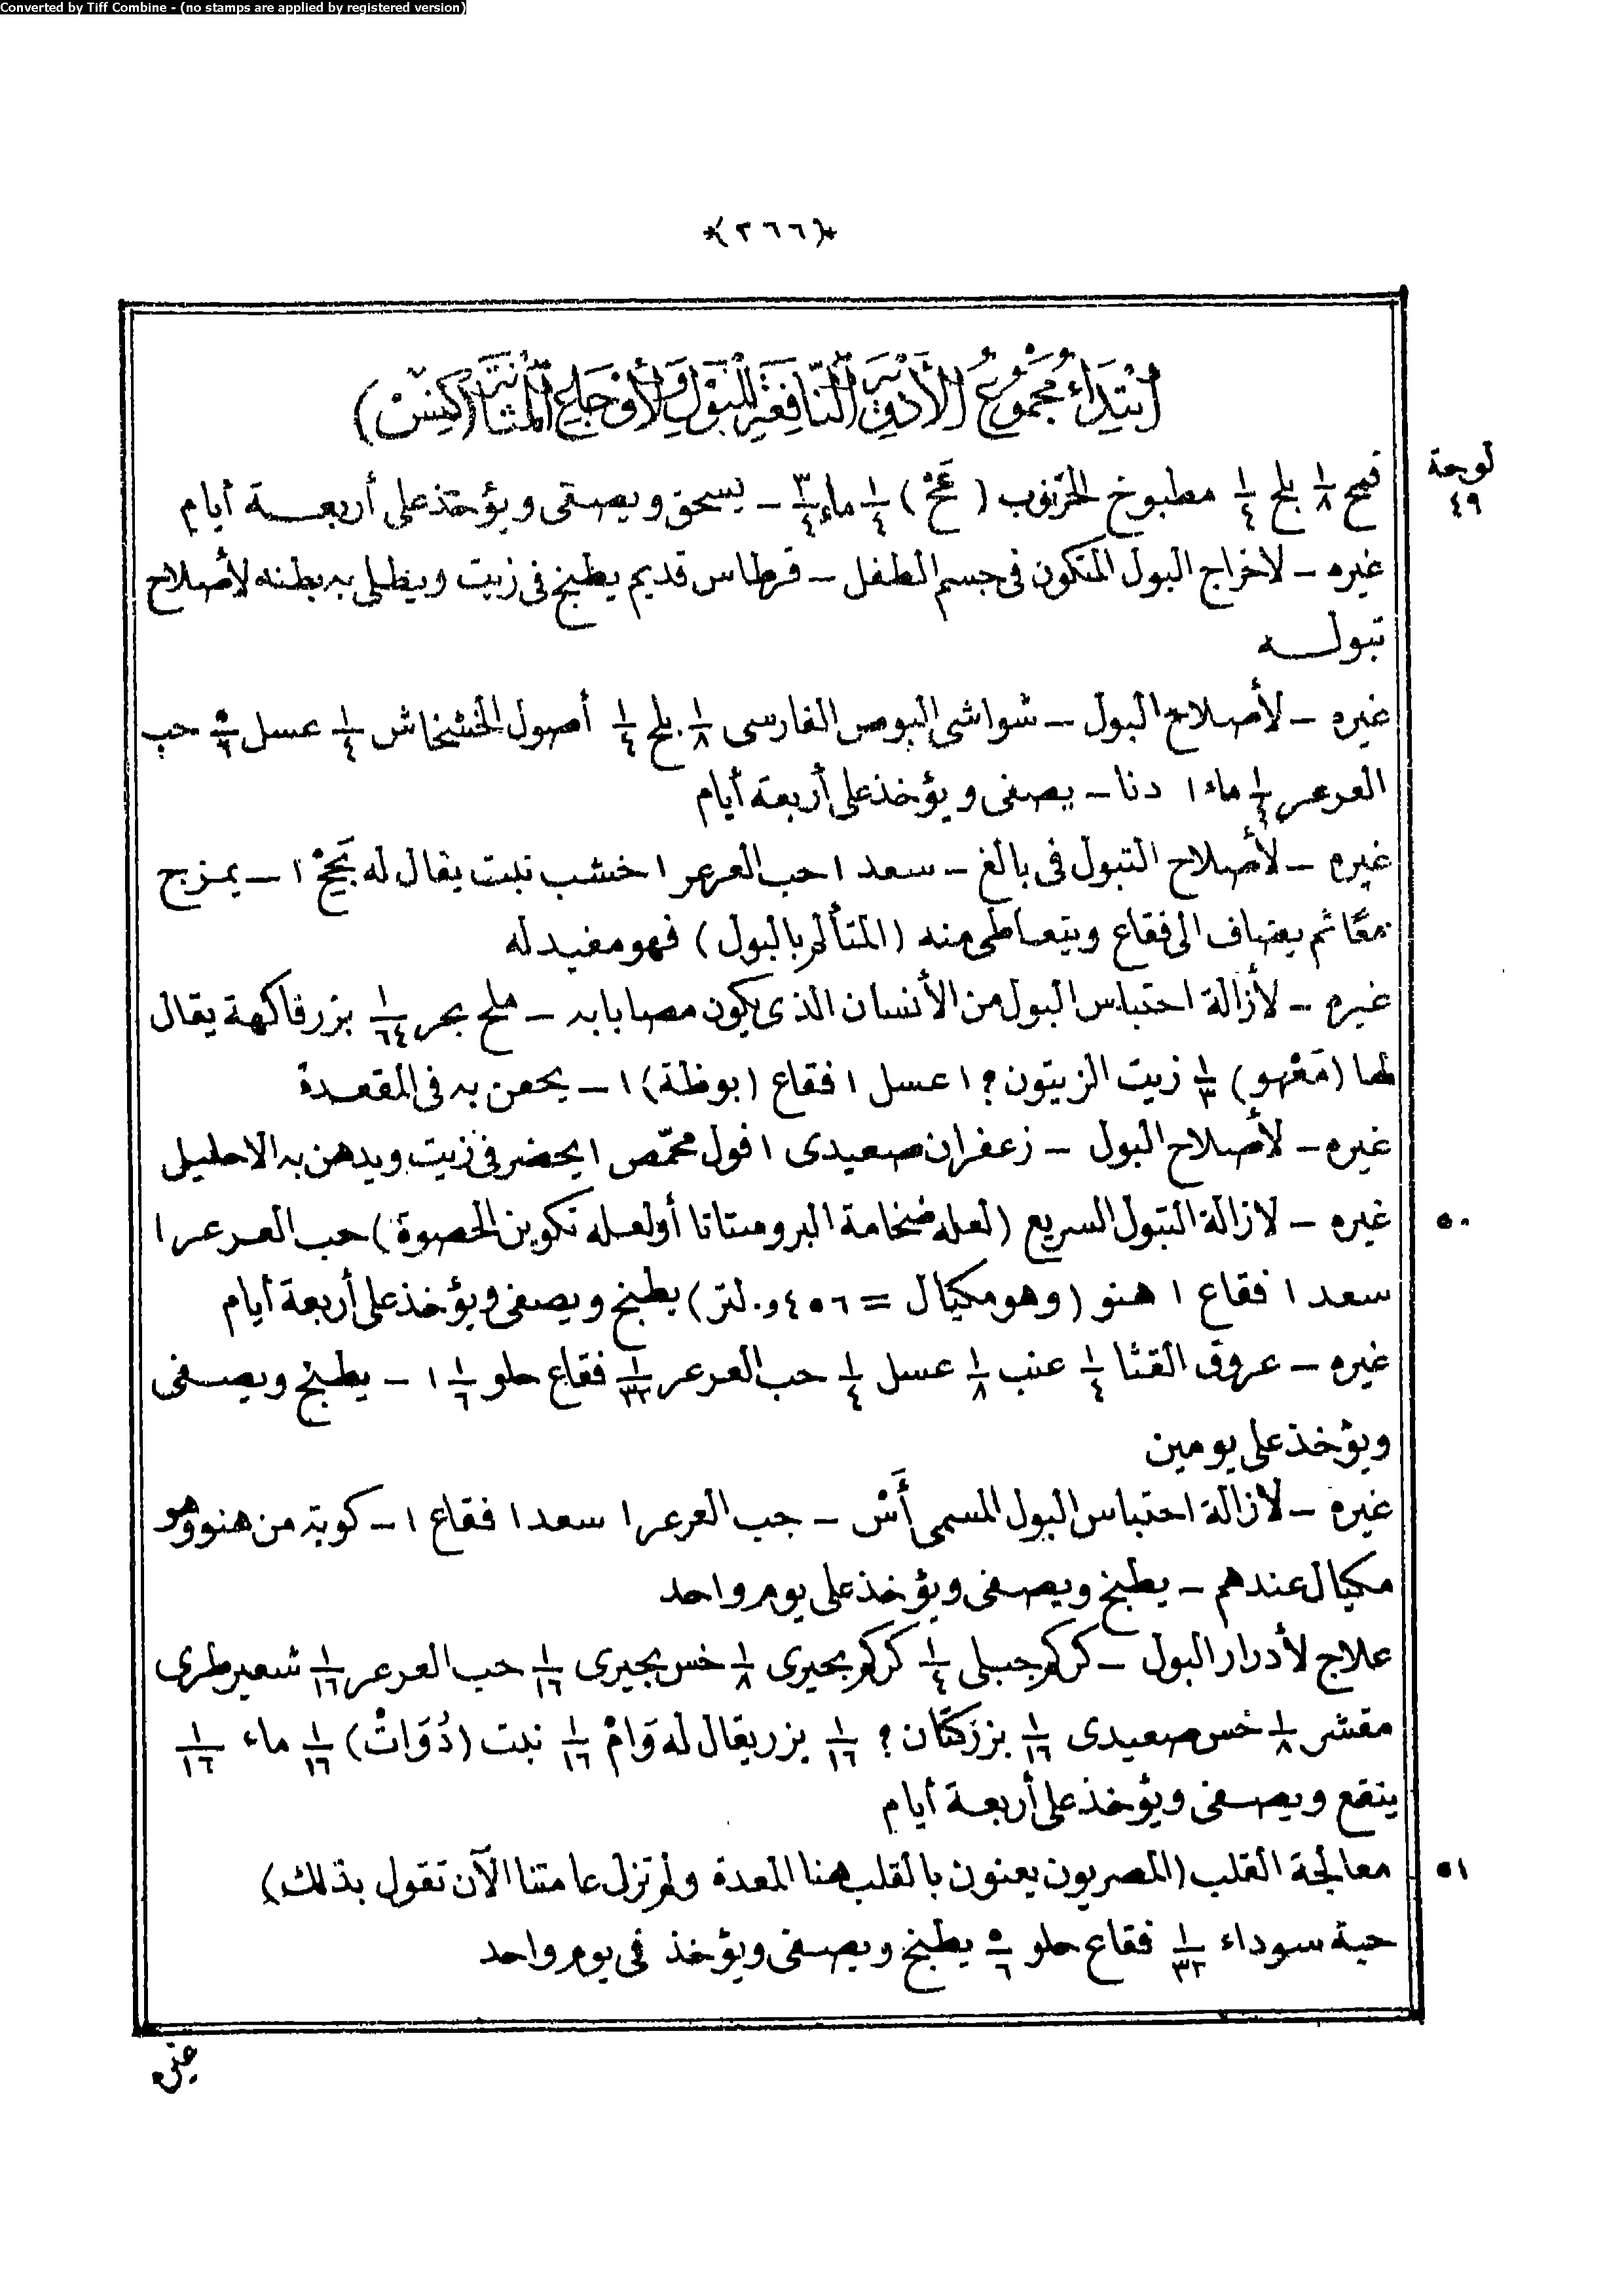 Converted by Tiff Combine - (no stamps are applied by registered version)
*(٢٦٦)*
ابْتِدَاءُ مَجْمُوعُ الأَدْوِيَةِ النَّافِعَةِ لِلْبَوْلِ وَلِأَوْجَاعِ الْمَثَانَةِ (كِنِسْ)
لوحة
٤٩
قمح ١/٨ بلح ١/٤ مطبوخ الخرّنوب ( عَخْ ) ١/٤ ماء ٣/٤ – يسحق ويصفى ويؤخذ على أربعـــة أيام
غيره – لاخراج البول المتكون فى جسم الطفل – قرطاس قديم يطبخ فى زيت ويطلى به بطنه لأصلاح
تبولـــه
غيره – لأصلاح البول – شواشى البوص الفارسى ١/٨ بلح ١/٤ أصول الخشخاش ١/٤ عسل ٥/٦ حب
العرعر ١/٤ ماء ١ دنا – يصفى ويؤخذ على أربعة أيام
غيره – لأصلاح التبول فى بالغ – سعد ١ حب العرعر ١ خشب نبت يقال له بَجِخْ ١ – يمزج
معًا ثم يضاف الى فقاع ويتعاطى منه (المتألم بالبول) فهو مفيد له
غيره – لأزالة احتباس البول من الأنسان الذى يكون مصابا به – ملح بحر ١/٦٤ بزر فاكهة يقال
لها (مَعْهو) ١/٣ زيت الزيتون ؟ ١ عسل ١ فقاع (بوظة) ١ – يحقن به فى المقعدة
غيره – لأصلاح البول – زعفران صعيدى ١ فول محمّص ١ يحضر فى زيت ويدهن به الاحليل
٥٠
غيره – لازالة التبول السريع (لعله ضخامة البروستاتا أو لعله تكوين الحصوة) حب العرعر ١
سعد ١ فقاع ١ هنو (وهو مكيال = ٤٥٦و. لتر) يطبخ ويصفى ويؤخذ على أربعة أيام
غيره – عروق القثا ١/٤ عنب ١/٨ عسل ١/٤ حب العرعر ١/٣٢ فقاع حلو ١/٦ ١ – يطبخ ويصفى
ويؤخذ على يومين
غيره – لازالة احتباس البول المسمى أَسْ – حب العرعر ١ سعد ١ فقاع ١ – كوبة من هنو وهو
مكيال عندهم – يطبخ ويصفى ويؤخذ على يوم واحد
علاج لأدرار البول – كركم جبلى ١/٤ كركم بحيرى ١/٨ خس بحيرى ١/١٦ حب العرعر ١/١٦ شعير طرى
مقشر ١/٨ خس صعيدى ١/١٦ بزر كتّان ؟ ١/١٦ بزر يقال له وَامْ ١/١٦ نبت (دُوَاتْ) ١/١٦ ماء ١/١٦
ينقع ويصفى ويؤخذ على أربعة أيام
٥١
معالجة القلب (المصريون يعنون بالقلب هنا المعدة ولم تزل عامتنا الآن تقول بذلك)
حبة سوداء ١/٣٢ فقاع حلو ٥/٦ يطبخ ويصفى ويؤخذ فى يوم واحد
غيره